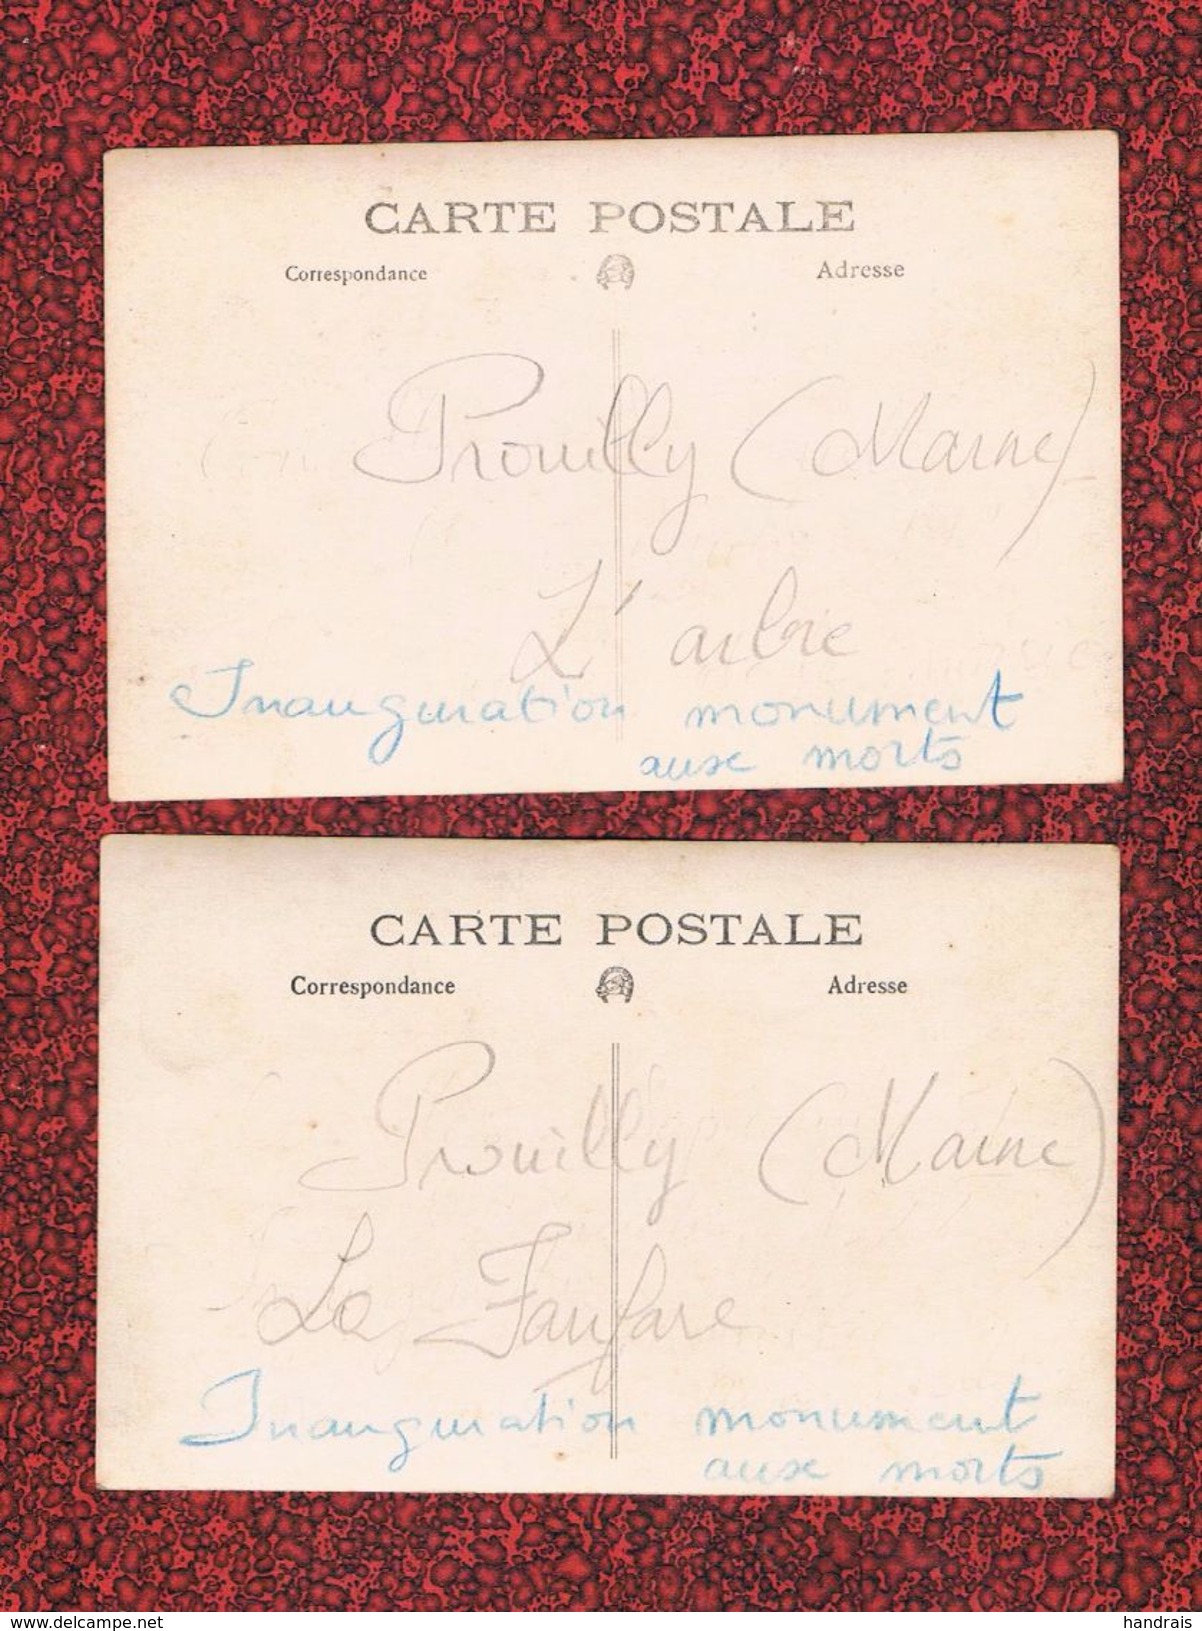 CARTE POSTALE
Correspondance Adresse
Prouilly (Marne)
L'arbre
Inauguration monument
aux morts
CARTE POSTALE
Correspondance Adresse
Prouilly (Marne)
La Fanfare
Inauguration monument
aux morts
website: delcampe.net handrais